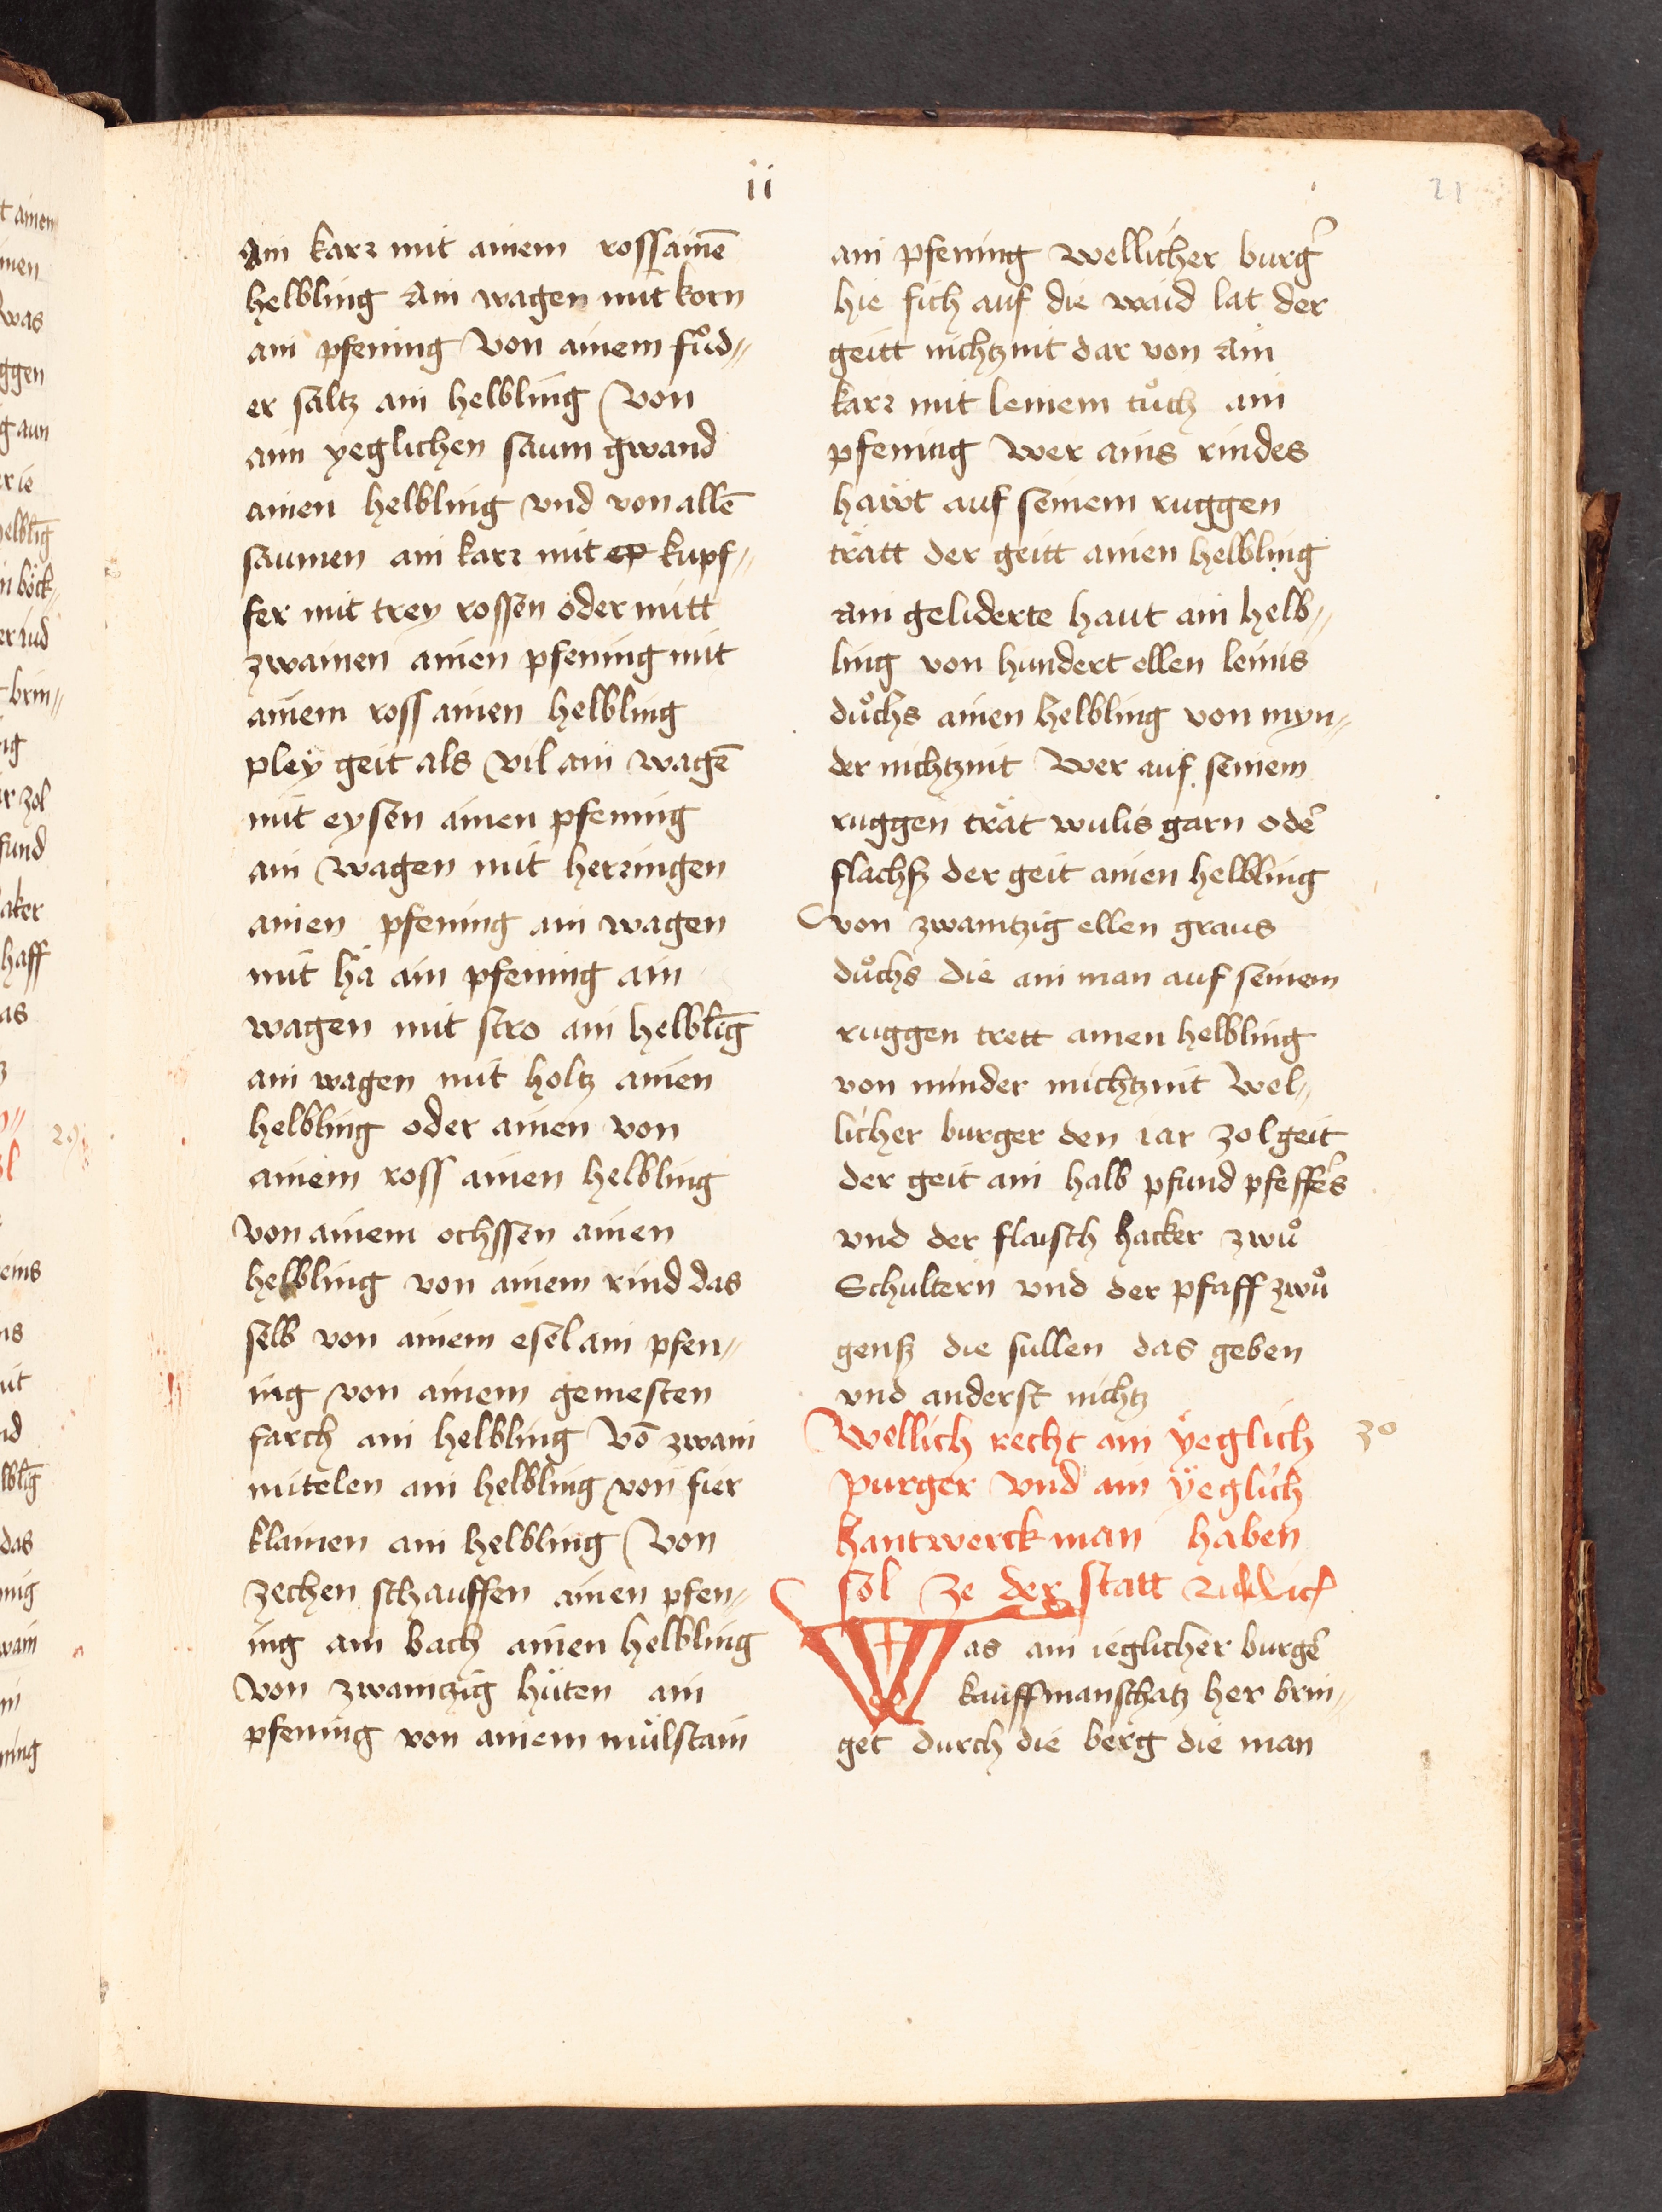 ii
21
Ain karr mit ainem ross ainē
helbling Ain wagen mit korn
ain pfening Von ainem fůd„
er saltz ain helbling Von
ain yeglichen saum gwand
ainen helbling vnd von allē
saumen ain karr mit kupf„
fer mit trey rossen oder mitt
zwainen ainen pfening mit
ainem ross ainen helbling
pleÿ geit als vil ain wagē
mit eysen ainen pfening
ain wagen mit herringen
ainen pfening ain wagen
mit hä ain pfening ain
wagen mit stro ain helblīg
ain wagen mit holtz ainen
helbling oder ainen von
ainem ross ainen helbling
von ainem ochssen ainen
helbling von ainem rind das
selb von ainem esel ain pfen„
ing von ainem gemesten
farch ain helbling Vō zwain
mitelen ain helbling von fier
klainen ain helbling Von
zechen schauffen ainen pfen„
ing ain bach ainen helbling
von zwaintzig hüten ain
pfening von ainem mülstain
ain pfening Wellicher burg̃
hie sich auf die waid lat der
geitt nichtznit dar von Ain
karr mit leinem tůch ain
pfening Wer ains rindes
hawt auf seinem ruggen
trätt der geitt ainen helbling
Ain geliderte haut ain helb„
ling von hundert ellen leinis
důchs ainen helbling von myn„
der nichtznit Wer auf seinem
ruggen trät wulis garn odē
flachß der geit ainen helbling
von zwaintzig ellen graus
důchs die ain man auf seinem
ruggen trett ainen helbling
von minder nichtznit Wel„
licher burger den iar zol geit
der geit ain halb pfund pfeffēs
vnd der flaisch hacker zwů
Schultern vnd der pfaff zwů
genß die sullen das geben
vnd anderst nichtz
Wellich recht ain ÿeglich
purger vnd ain ÿeglich
hantwerck man haben
sol ze der statt
30
Was ain ieglicher burgē
kauffmanschatz her brin„
get durch die berg die man